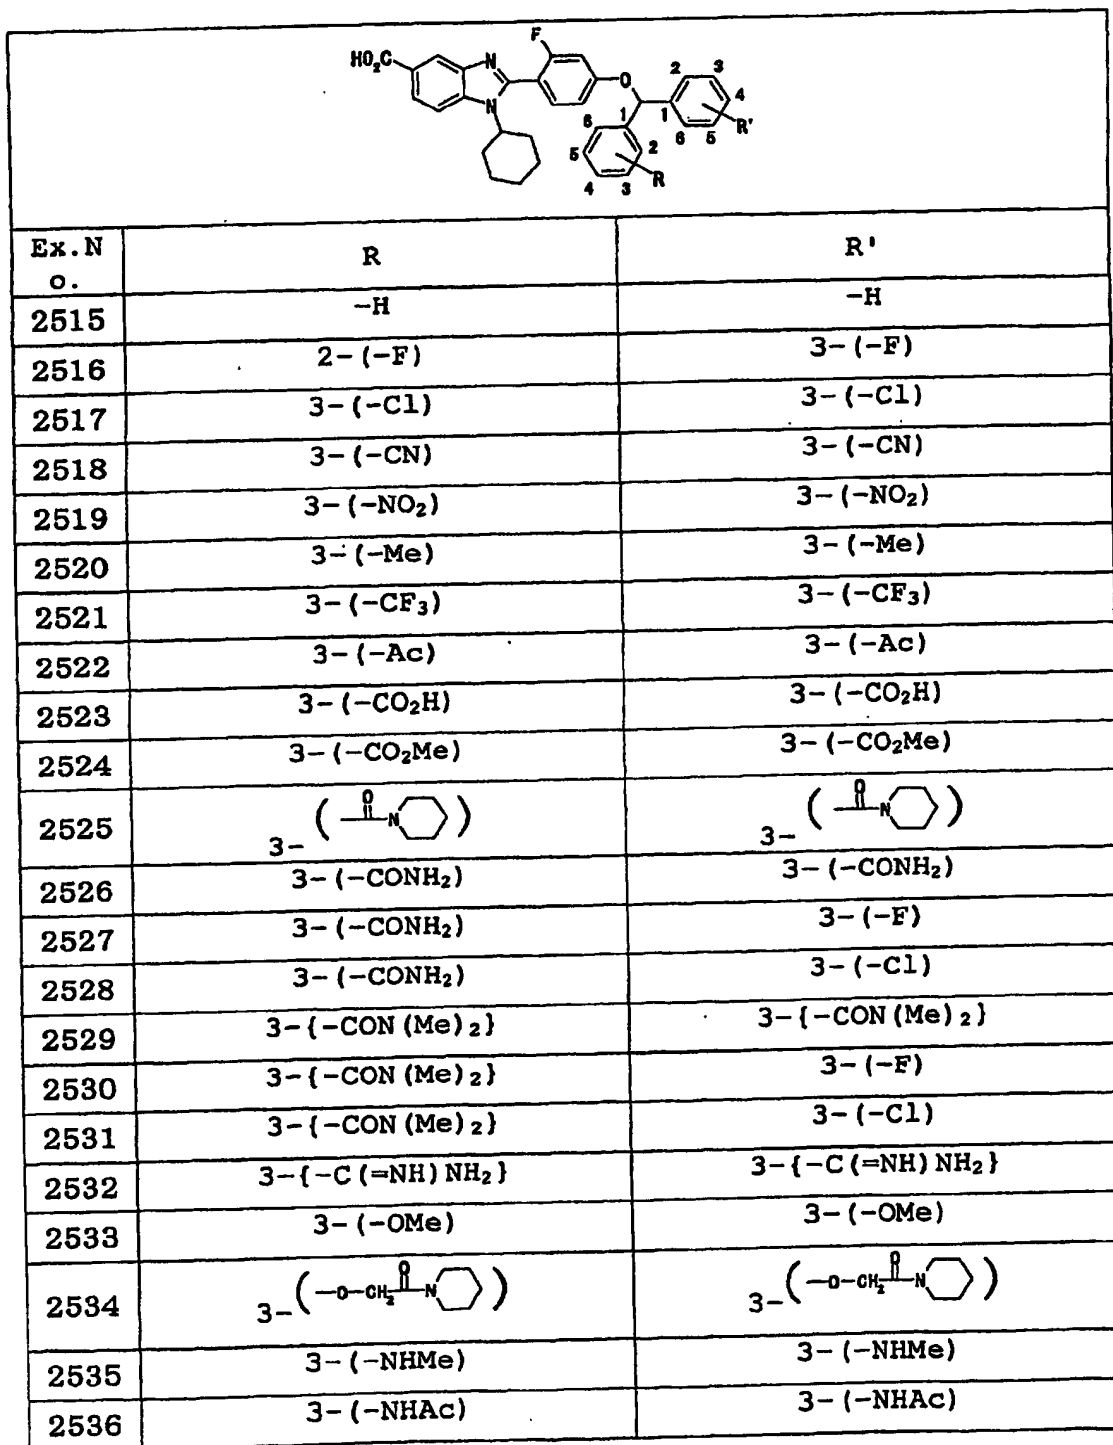 HO2C N N F O 2 3 4 1 6 5 R' 1 6 5 4 3 2 R
Ex.N
o. R R'
2515 -H -H
2516 2-(-F) 3-(-F)
2517 3-(-Cl) 3-(-Cl)
2518 3-(-CN) 3-(-CN)
2519 3-(-NO2) 3-(-NO2)
2520 3-(-Me) 3-(-Me)
2521 3-(-CF3) 3-(-CF3)
2522 3-(-Ac) 3-(-Ac)
2523 3-(-CO2H) 3-(-CO2H)
2524 3-(-CO2Me) 3-(-CO2Me)
2525 3-( O N ) 3-( O N )
2526 3-(-CONH2) 3-(-CONH2)
2527 3-(-CONH2) 3-(-F)
2528 3-(-CONH2) 3-(-Cl)
2529 3-{-CON(Me)2} 3-{-CON(Me)2}
2530 3-{-CON(Me)2} 3-(-F)
2531 3-{-CON(Me)2} 3-(-Cl)
2532 3-{-C(=NH)NH2} 3-{-C(=NH)NH2}
2533 3-(-OMe) 3-(-OMe)
2534 3-(-O-CH2 O N ) 3-(-O-CH2 O N )
2535 3-(-NHMe) 3-(-NHMe)
2536 3-(-NHAc) 3-(-NHAc)